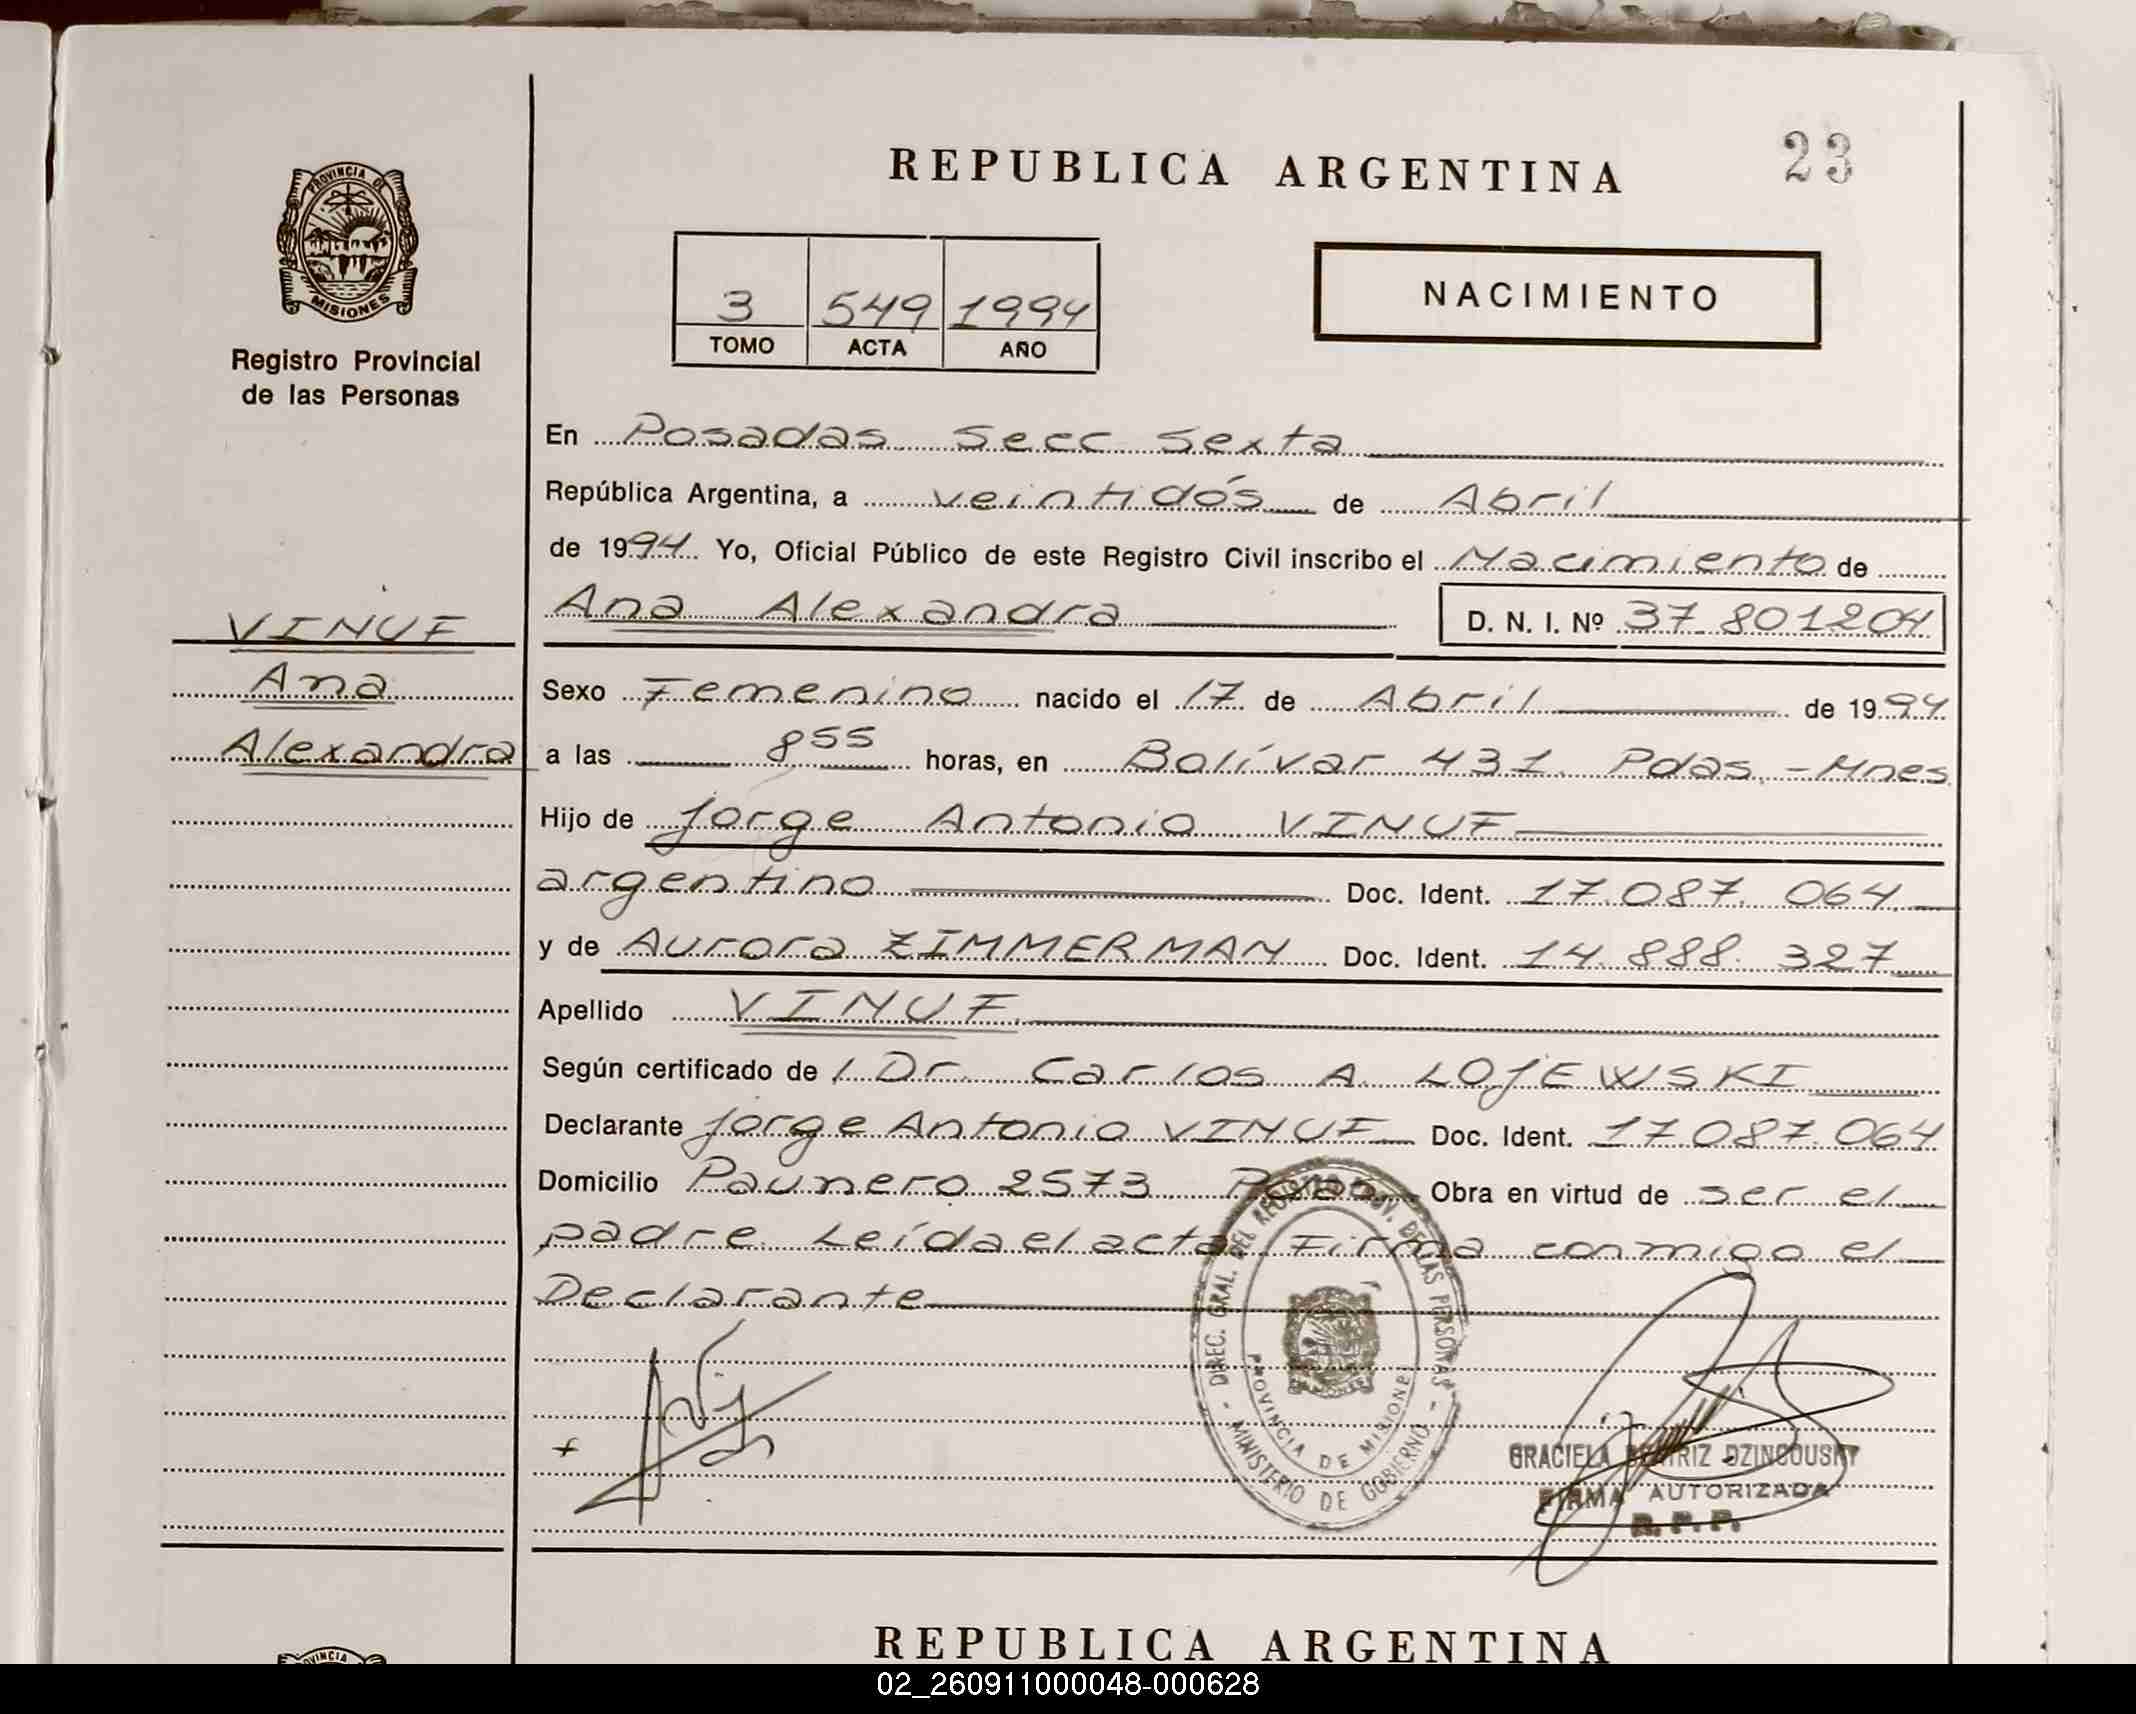 REPUBLICA ARGENTINA
23
PROVINCIA DE
MISIONES
Registro Provincial
de las Personas
3 549 1994
TOMO ACTA AÑO
NACIMIENTO
En Posadas Secc Sexta
República Argentina, a veintidós de Abril
de 1994 Yo, Oficial Público de este Registro Civil inscribo el Nacimiento de
Ana Alexandra D. N. I. Nº 37.801204
VINUE
Ana
Alexandra
Sexo Femenino nacido el 17 de Abril de 1994
a las 8 55 horas, en Bolívar 431 Pdas. - Mnes
Hijo de Jorge Antonio VINUE
argentino Doc. Ident. 17.087.064
y de Aurora ZIMMERMAN Doc. Ident. 14.888.327
Apellido VINUE
Según certificado de / Dr. Carlos A. LOJEWSKI
Declarante Jorge Antonio VINUE Doc. Ident. 17.087.064
Domicilio Paunero 2573 Obra en virtud de ser el
padre. Leída el acta Firma conmigo el
Declarante
DIREC. GRAL. DEL REGISTRO PROV. DE LAS PERSONAS
PROVINCIA DE MISIONES
- MINISTERIO DE GOBIERNO -
GRACIELA BEATRIZ DZINCOUSKY
FIRMA AUTORIZADA
R. P. P.
REPUBLICA ARGENTINA
02_260911000048-000628